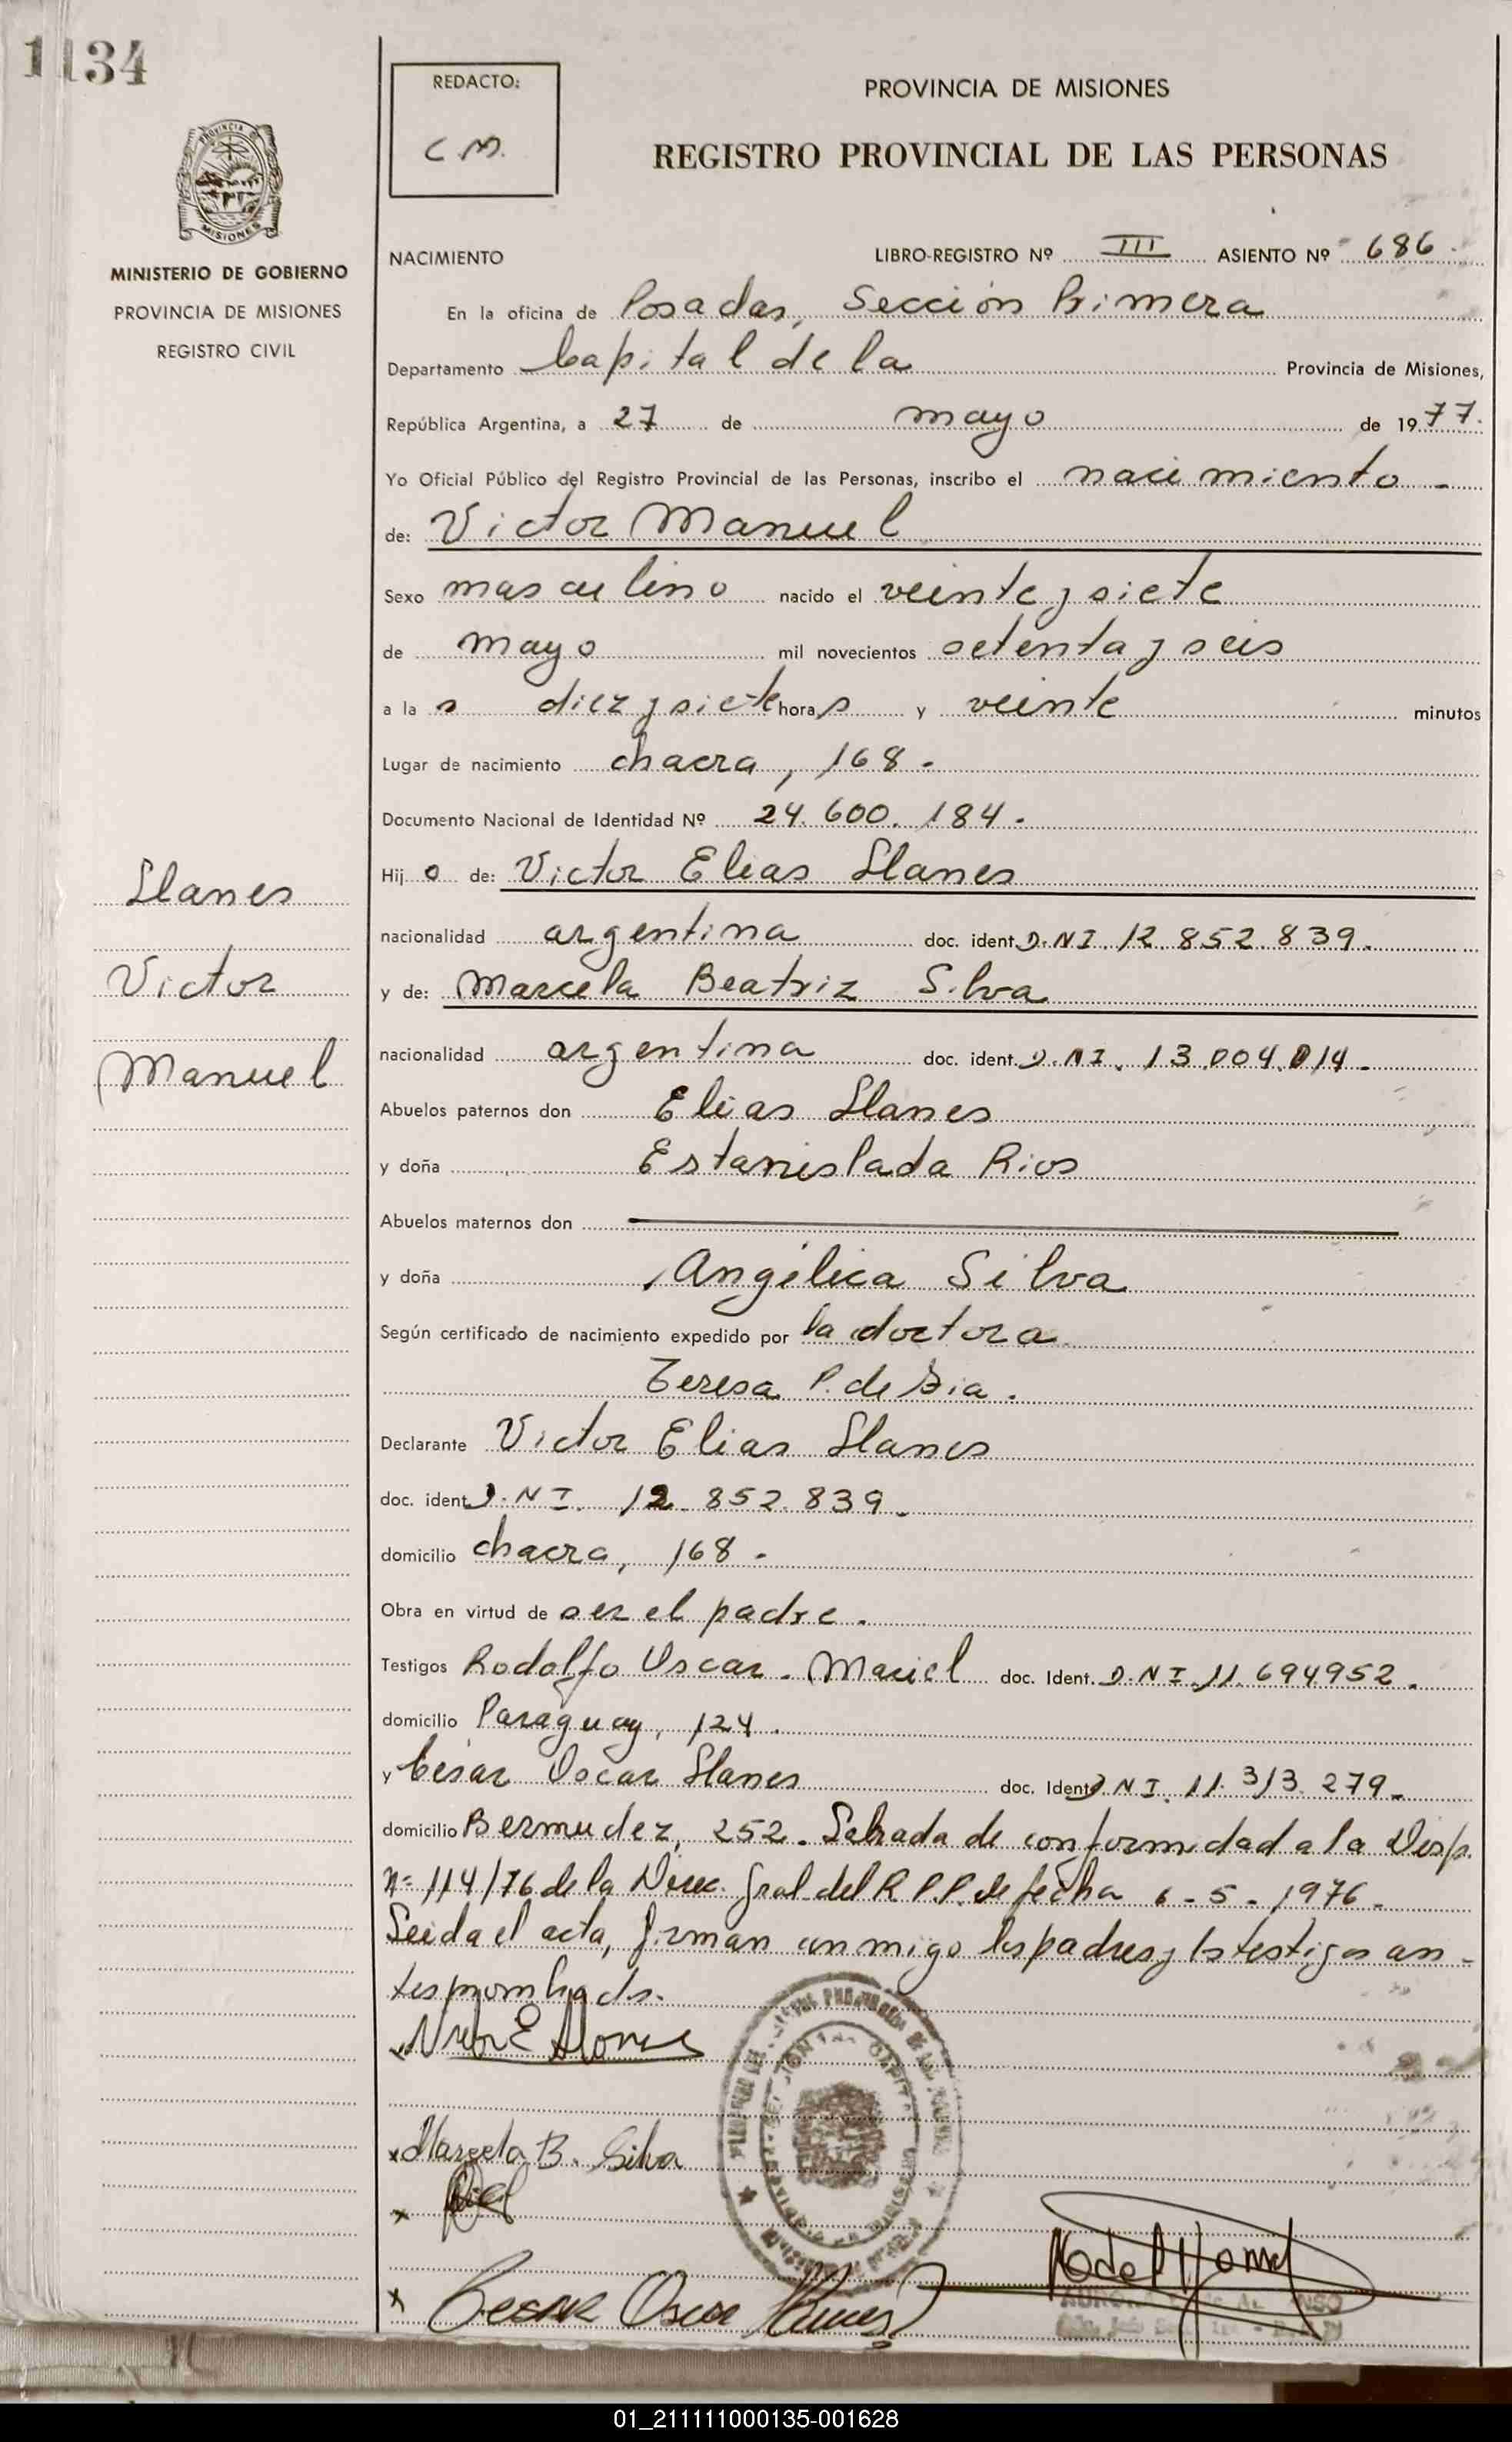 1134
REDACTO:
C.M.
PROVINCIA DE MISIONES
REGISTRO PROVINCIAL DE LAS PERSONAS
MINISTERIO DE GOBIERNO
PROVINCIA DE MISIONES
REGISTRO CIVIL
NACIMIENTO LIBRO-REGISTRO Nº III ASIENTO Nº 686.
En la oficina de Posadas, Sección Primera
Departamento Capital de la Provincia de Misiones,
República Argentina, a 27 de mayo de 1977.
Yo Oficial Público del Registro Provincial de las Personas, inscribo el nacimiento -
de: Victor Manuel
Sexo masculino nacido el veinte y siete
de mayo mil novecientos setenta y seis
a las diez y siete horas y veinte minutos
Lugar de nacimiento chacra, 168.
Documento Nacional de Identidad Nº 24.600.184.
Hijo de: Victor Elias Llanes
Llanes
nacionalidad argentina doc. ident. D.N.I. 12.852.839.
Victor
y de: Marcela Beatriz Silva
Manuel
nacionalidad argentina doc. ident. D.N.I. 13.004.014.
Abuelos paternos don Elias Llanes
y doña Estanislada Rios
Abuelos maternos don
y doña Angélica Silva
Según certificado de nacimiento expedido por la doctora
Teresa P. de
Declarante Victor Elias Llanes
doc. ident. D.N.I. 12.852.839.
domicilio chacra, 168.
Obra en virtud de ser el padre.
Testigos Rodolfo Oscar Maciel doc. Ident. D.N.I. 11.694952.
domicilio Paraguay, 124.
y César Oscar Llanes doc. Ident. D.N.I. 11.313.279.
domicilio Bermudez, 252. Labrada de conformidad a la Disp.
nº 114/76 de la Direc. Gral del R.P.P. de fecha 6-5-1976.
Leida el acta, firman conmigo los padres y los testigos an-
tes nombrados.
Victor E Llanes
x Marcela B. Silva
x
x Cesar Oscar Llanes
01_211111000135-001628